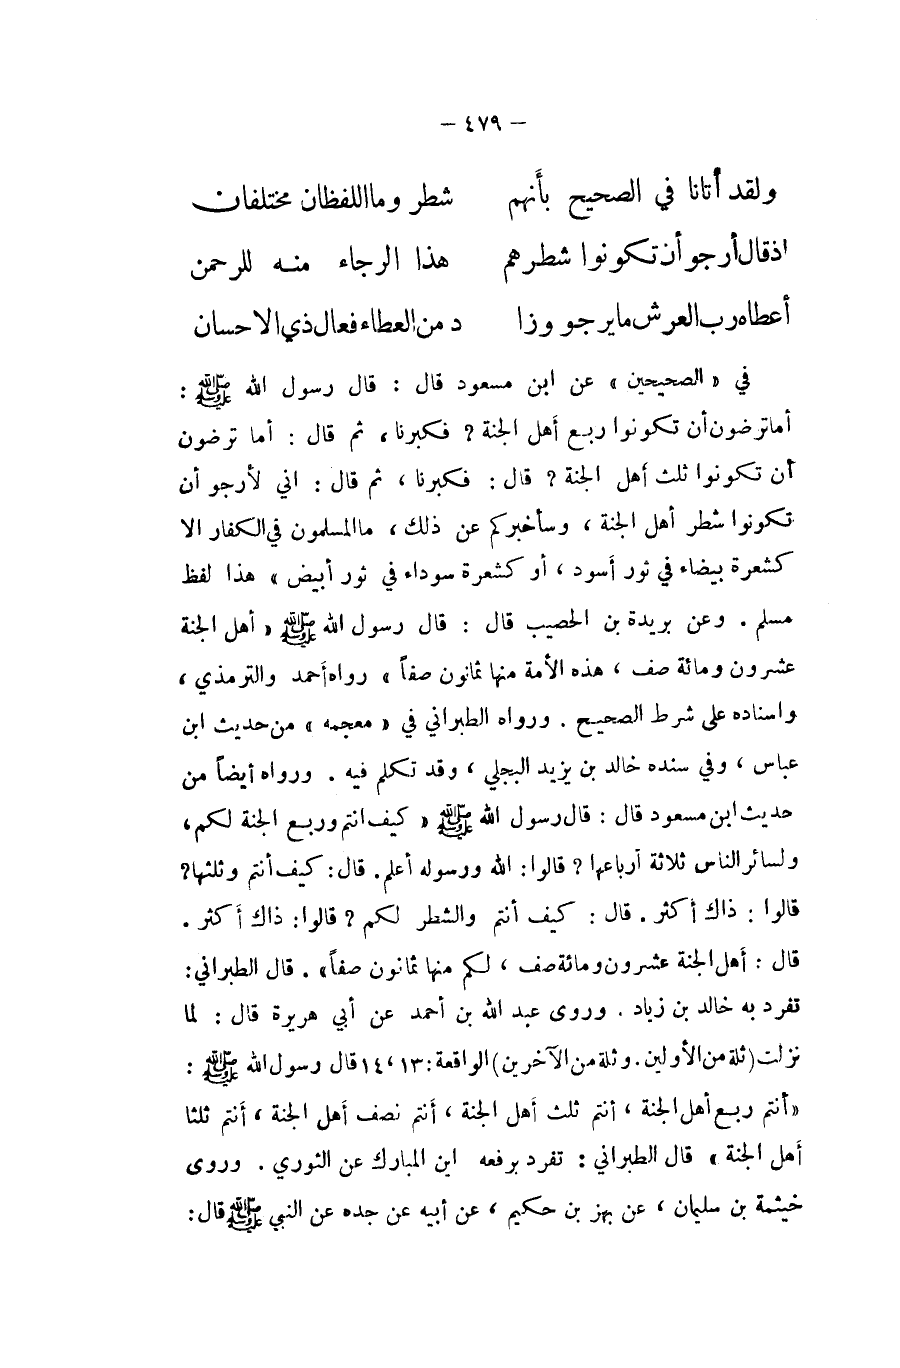 — ٤٧٩ —
ولقد أتانا في الصحيح بأَنهم شطر وما اللفظان مختلفان
اذ قال أرجو أن تكونوا شطرهم هذا الرجاء منه للرحمن
أعطاه رب العرش ما يرجو وزا د من العطاء فعال ذي الاحسان
في « الصحيحين » عن ابن مسعود قال : قال رسول الله ﷺ :
أما ترضون أن تكونوا ربع أهل الجنة ? فكبرنا ، ثم قال : أما ترضون
أن تكونوا ثلث أهل الجنة ? قال : فكبرنا ، ثم قال : اني لأرجو أن
تكونوا شطر أهل الجنة ، وسأخبركم عن ذلك ، ما المسلمون في الكفار الا
كشعرة بيضاء في ثور أسود ، أو كشعرة سوداء في ثور أبيض » هذا لفظ
مسلم . وعن بريدة بن الحصيب قال : قال رسول الله ﷺ « أهل الجنة
عشرون ومائة صف ، هذه الأمة منها ثمانون صفاً » رواه أحمد والترمذي ،
واسناده على شرط الصحيح . ورواه الطبراني في « معجمه » من حديث ابن
عباس ، وفي سنده خالد بن يزيد البجلي ، وقد تكلم فيه . ورواه أيضاً من
حديث ابن مسعود قال : قال رسول الله ﷺ « كيف انتم وربع الجنة لكم ،
ولسائر الناس ثلاثة أرباعها ? قالوا : الله ورسوله أعلم . قال : كيف أنتم وثلثها ?
قالوا : ذاك أكثر . قال : كيف أنتم والشطر لكم ? قالوا : ذاك أكثر .
قال : أهل الجنة عشرون ومائة صف ، لكم منها ثمانون صفاً » . قال الطبراني :
تفرد به خالد بن زياد . وروى عبد الله بن أحمد عن أبي هريرة قال : لما
نزلت ( ثلة من الأولين . وثلة من الآخرين ) الواقعة : ١٣ ، ١٤ قال رسول الله ﷺ :
« أنتم ربع أهل الجنة ، أنتم ثلث أهل الجنة ، أنتم نصف أهل الجنة ، أنتم ثلثا
أهل الجنة » قال الطبراني : تفرد برفعه ابن المبارك عن الثوري . وروى
خيثمة بن سليمان ، عن بهز بن حكيم ، عن أبيه عن جده عن النبي ﷺ قال :